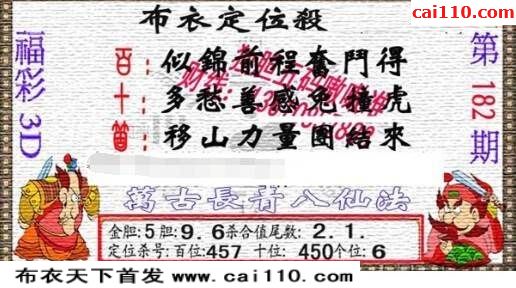 cai110.com
布衣定位殺
福彩3D
第182期
百：似錦前程奮鬥得
十：多愁善感免撞虎
個：移山力量團結來
萬古長青八仙法
金胆:5 胆:9.6杀合值尾数:2.1.
定位杀号:百位:457 十位:450个位:6
布衣天下首发 www.cai110.com